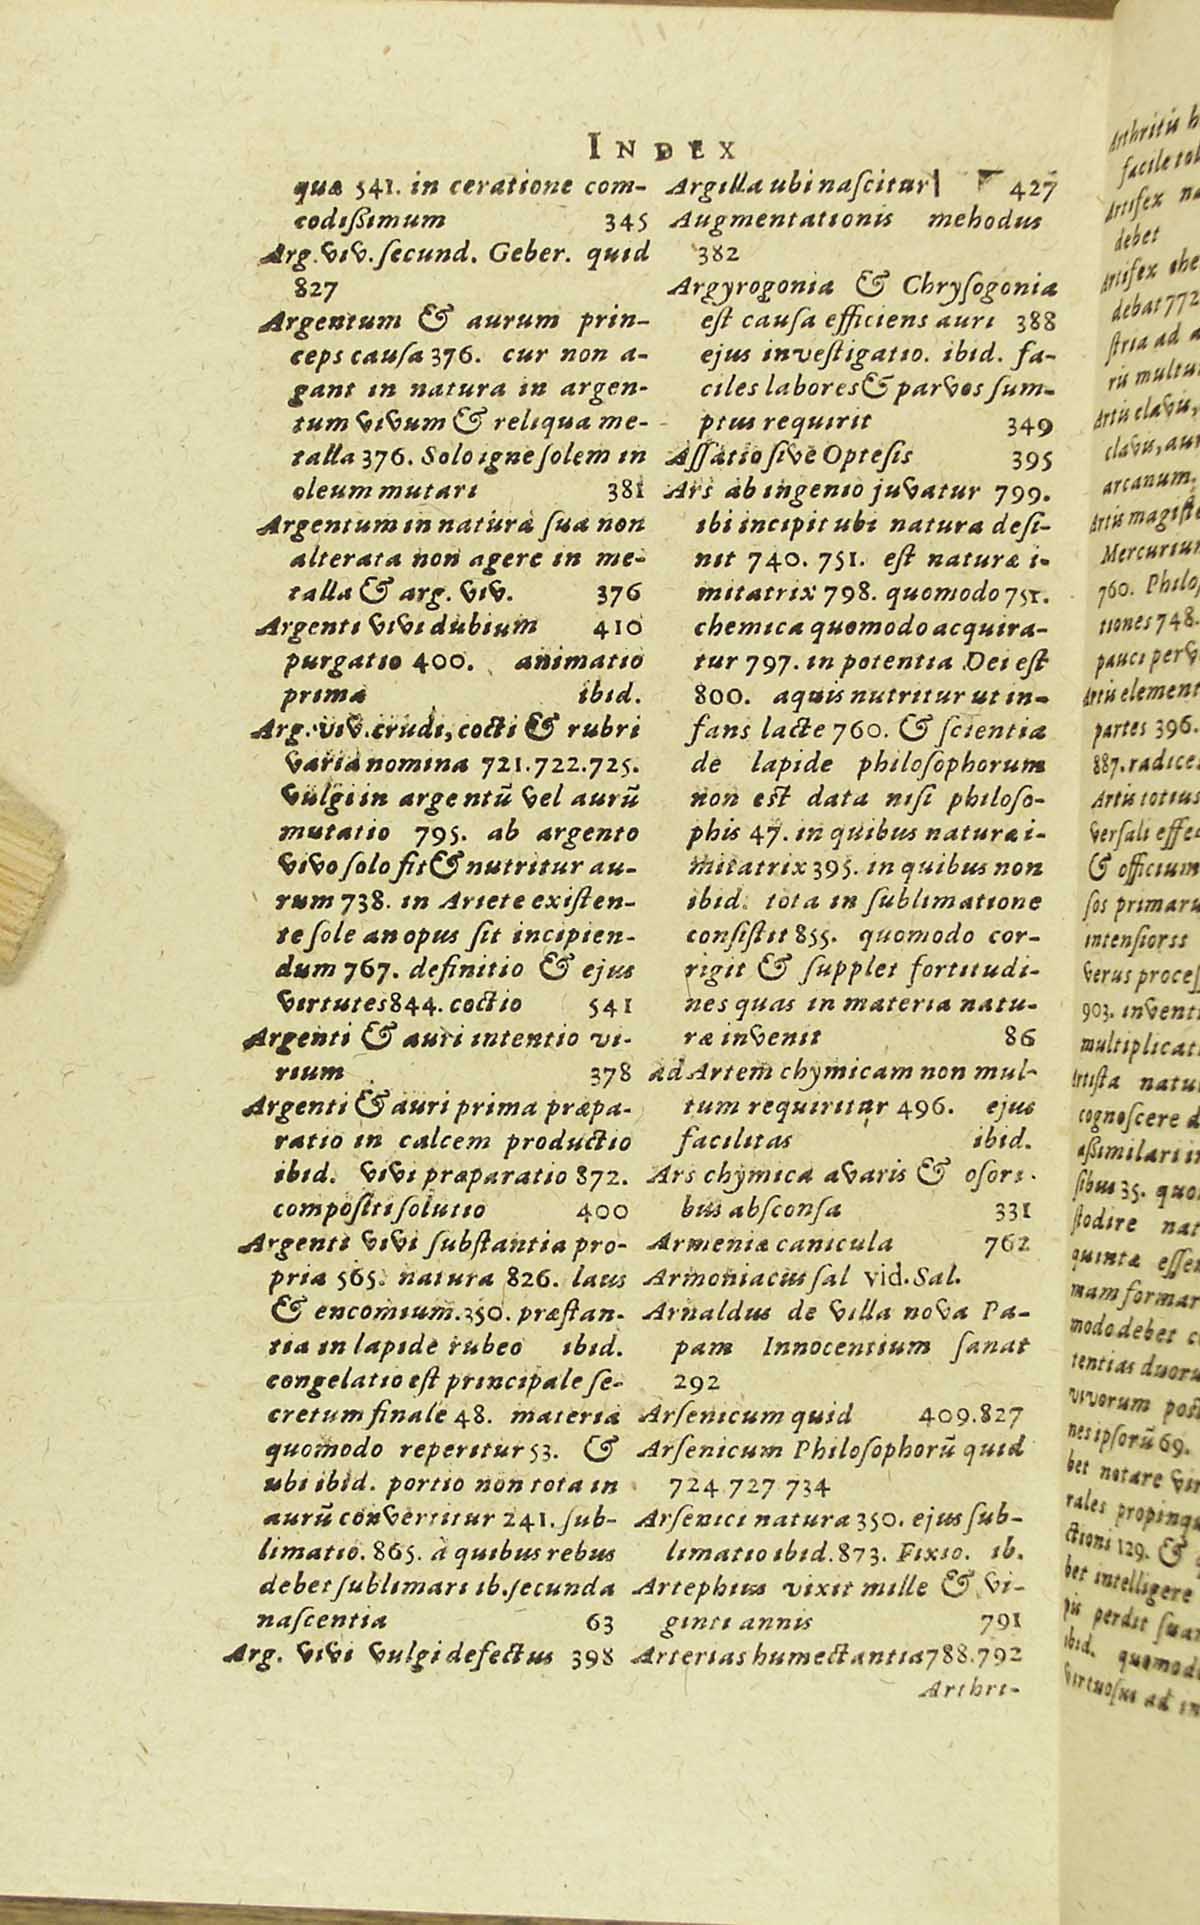 INDEX
quæ 541. in ceratione com-
codißimum 345
Arg. viv. ſecund. Geber. quid
827
Argentum & aurum prin-
ceps cauſa 376. cur non a-
gant in natura in argen-
tum vivum & reliqua me-
talla 376. Solo igne ſolem in
oleum mutari 381
Argentum in natura ſua non
alterata non agere in me-
talla & arg. viv. 376
Argenti vivi dubium 410
purgatio 400. animatio
prima ibid.
Arg. viv. crudi, cocti & rubri
varia nomina 721.722.725.
vulgi in argentū vel aurū
mutatio 795. ab argento
vivo ſolo fit & nutritur au-
rum 738. in Ariete exiſten-
te ſole an opus ſit incipien-
dum 767. definitio & ejus
virtutes 844. coctio 541
Argenti & auri intentio vi-
rium 378
Argenti & auri prima præpa-
ratio in calcem productio
ibid. vivi præparatio 872.
compoſiti ſolutio 400
Argenti vivi ſubſtantia pro-
pria 565. natura 826. laus
& encomium. 350. præſtan-
tia in lapide rubeo ibid.
congelatio eſt principale ſe-
cretum finale 48. materia
quomodo reperitur 53. &
ubi ibid. portio non tota in
aurū convertitur 241. ſub-
limatio. 865. a quibus rebus
debet ſublimari ib. ſecunda
naſcentia 63
Arg. vivi vulgi defectus 398
Argilla ubi naſcitur 427
Augmentationis mehodus
382
Argyrogonia & Chryſogonia
eſt cauſa efficiens auri 388
ejus inveſtigatio. ibid. fa-
ciles labores & parvos ſum-
ptus requirit 349
Aſſatio ſive Opteſis 395
Ars ab ingenio juvatur 799.
ibi incipit ubi natura deſi-
nit 740. 751. eſt naturæ i-
mitatrix 798. quomodo 751.
chemica quomodo acquira-
tur 797. in potentia Dei eſt
800. aquis nutritur ut in-
fans lacte 760. & ſcientia
de lapide philoſophorum
non eſt data niſi philoſo-
phis 47. in quibus naturæ i-
mitatrix 395. in quibus non
ibid. tota in ſublimatione
conſiſtit 855. quomodo cor-
rigit & ſupplet fortitudi-
nes quas in materia natu-
ræ invenit 86
ad Artem chymicam non mul-
tum requiritur 496. ejus
facilitas ibid.
Ars chymica avaris & oſori-
bus abſconſa 331
Armeniæ canicula 762
Armoniacus ſal vid. Sal.
Arnaldus de villa nova Pa-
pam Innocentium ſanat
292
Arſenicum quid 409.827
Arſenicum Philoſophorū quid
724 727 734
Arſenici natura 350. ejus ſub-
limatio ibid. 873. Fixio. ib.
Artephius vixit mille & vi-
ginti annis 791
Arterias humectantia 788.792
Arthri-
facile
Artifex
debet
Artifex
debat 772
ſtria ad
clavis,
arcanum.
Mercurium
760.
tiones 748.
pauci
partes 396.
887. radice
Artis totius
verſali
& officium
intenſiores
verus
903.
Artiſta
cognoſcere
aßimilari
ſibus 35.
ſtodire
quintæ
mam
modo debet
tentias
vivorum
nes ipſorū 69.
bet notare
rales
ctioni 129. &
bet intelligere
pis perdit
ibid. quomodo
virtuoſus ad